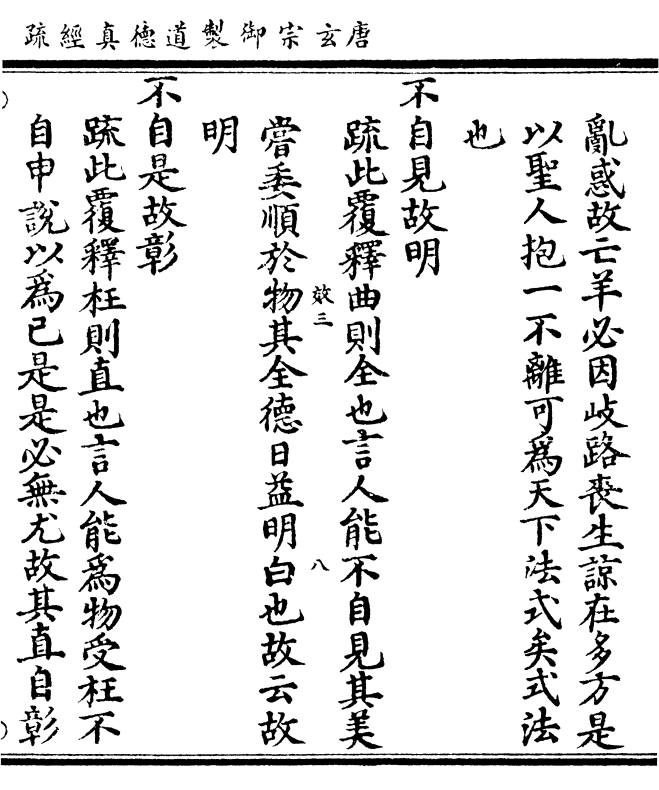 唐玄宗御製道德真經疏
亂惑故亡羊必因歧路喪生諒在多方是
以聖人抱一不離可爲天下法式矣式法
也
不自見故明
疏此覆釋曲則全也言人能不自見其美
效三 八
嘗委順於物其全德日益明白也故云故
明
不自是故彰
疏此覆釋枉則直也言人能爲物受枉不
自申說以爲已是是必無尤故其直自彰